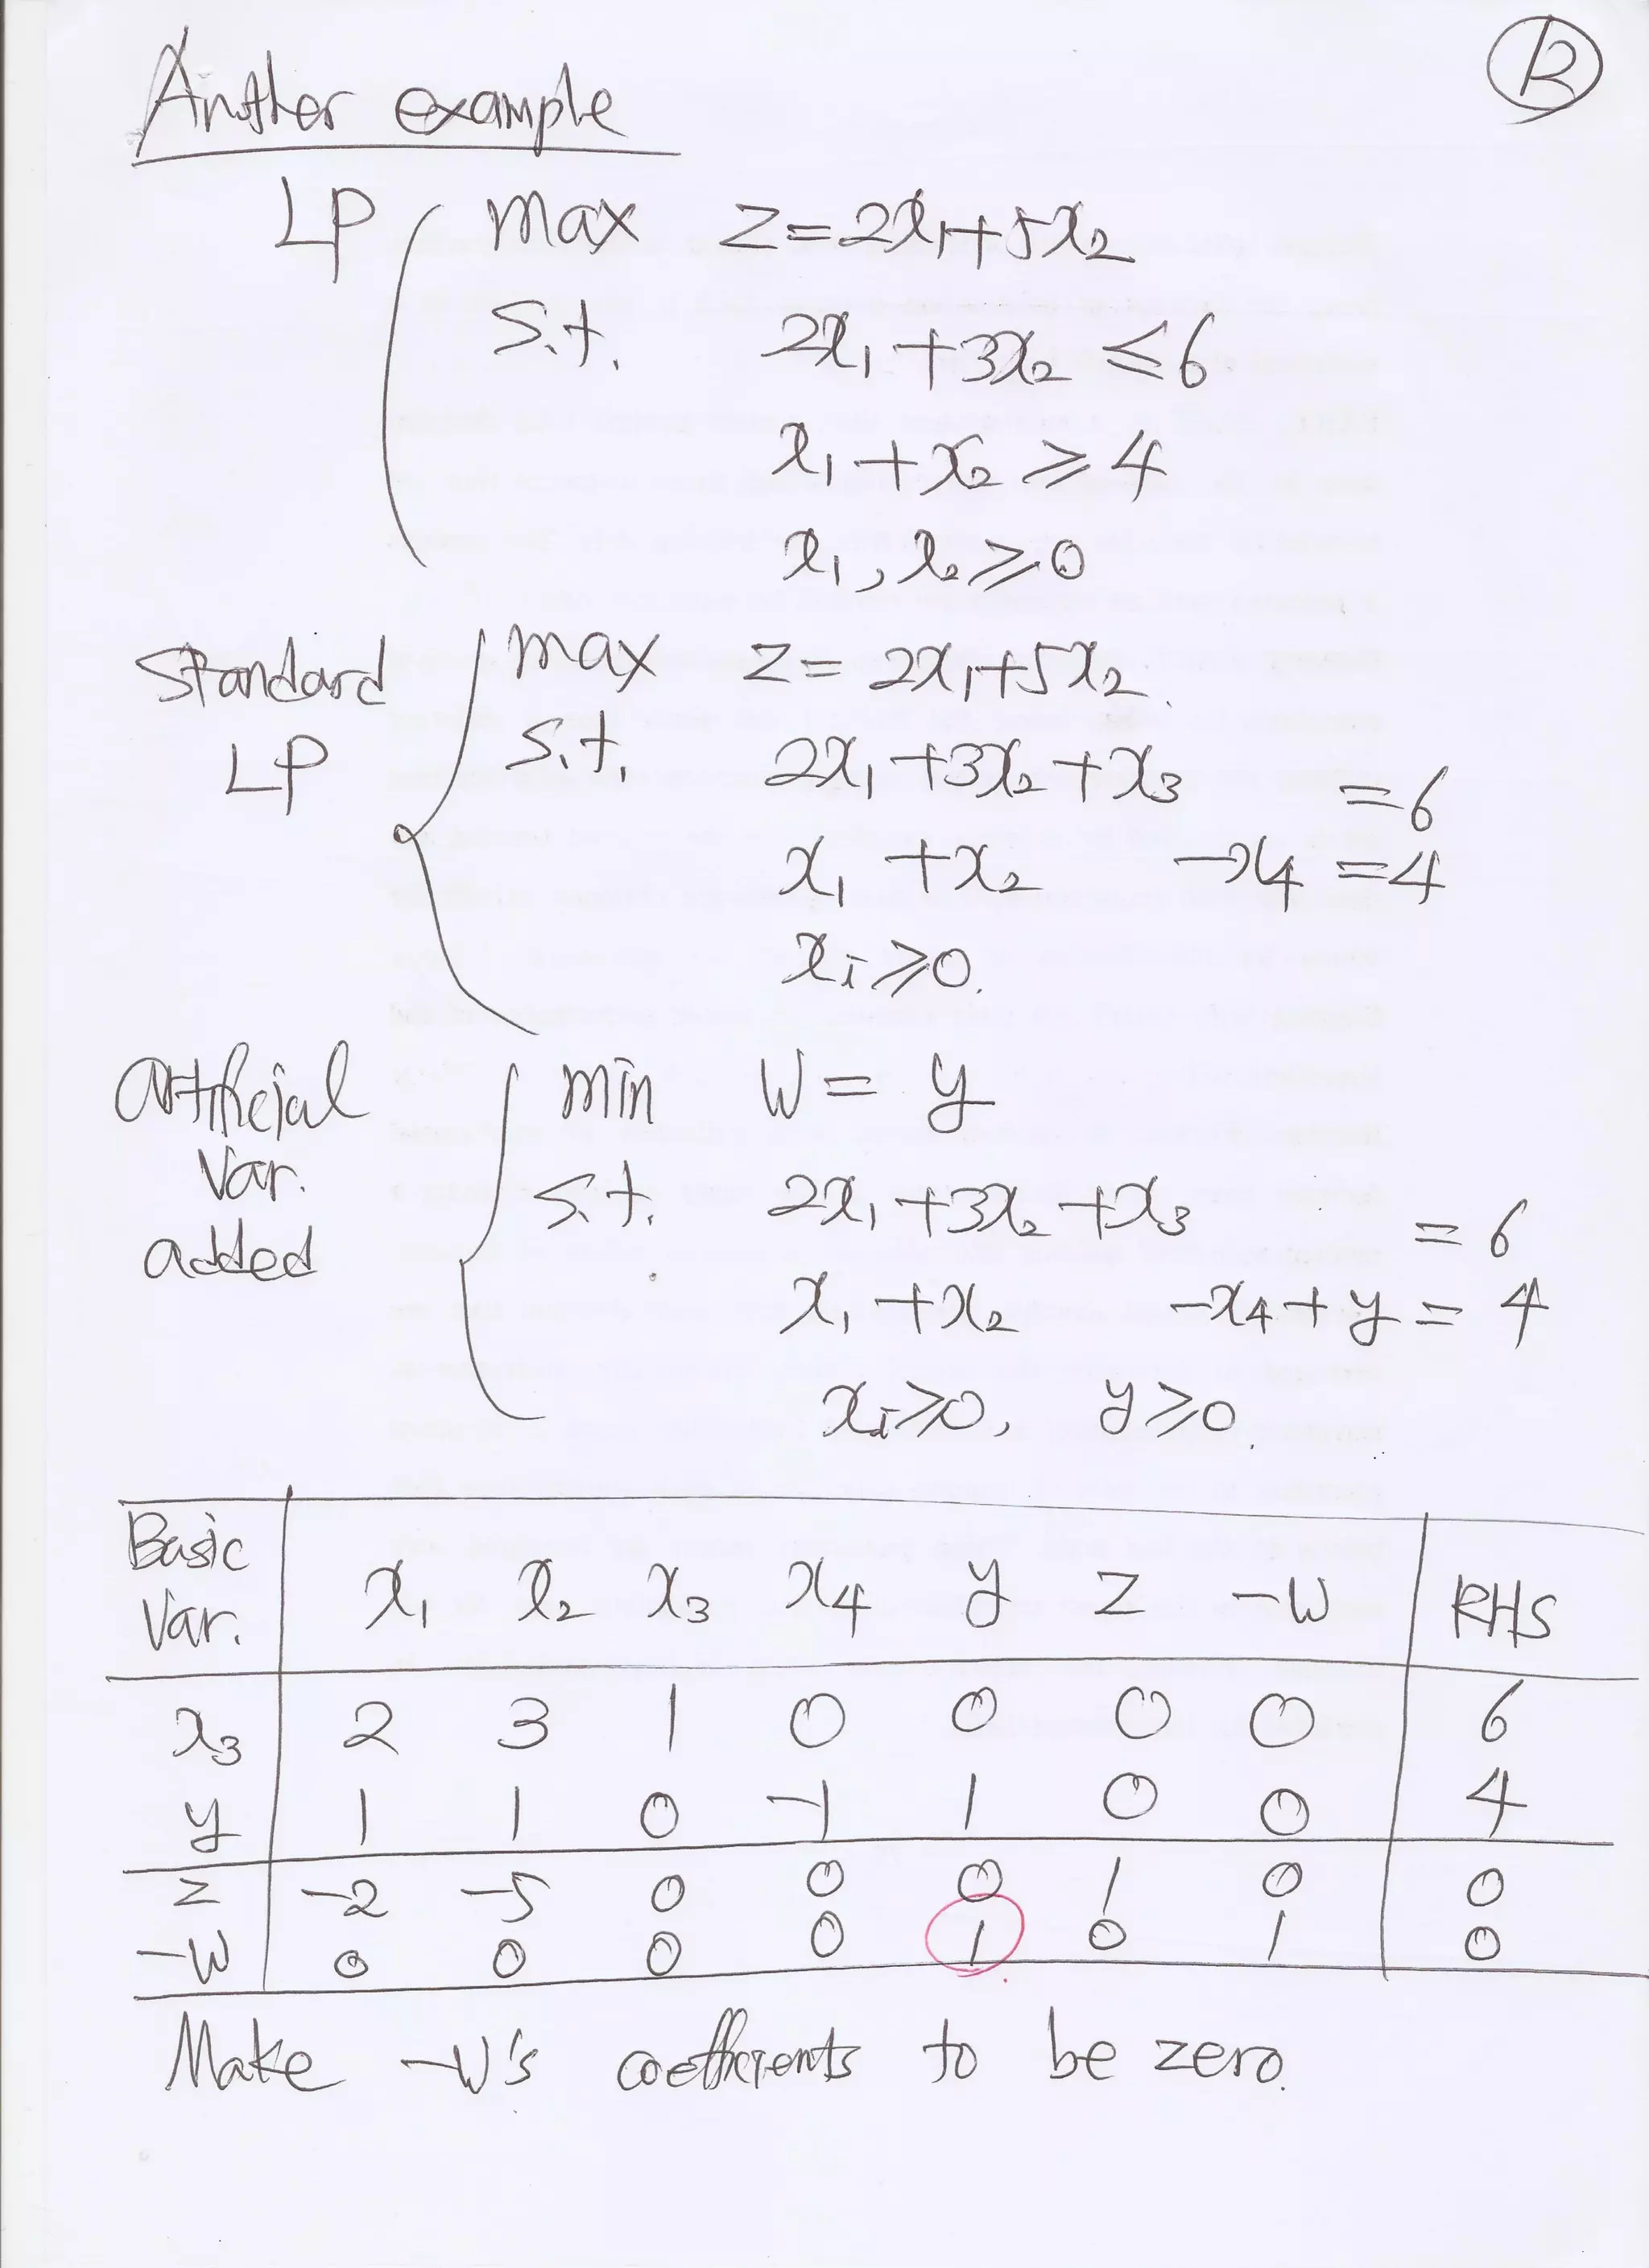 12
Another example
LP max z=2x₁+5x₂
s.t. 2x₁+3x₂≤6
x₁+x₂≥4
x₁,x₂≥0
Standard max z=2x₁+5x₂
LP s.t. 2x₁+3x₂+x₃ =6
x₁+x₂ -x₄=4
xᵢ≥0.
Artificial min W=y
Var. s.t. 2x₁+3x₂+x₃ =6
added x₁+x₂ -x₄+y=4
xᵢ≥0, y≥0.
Basic Var. x₁ x₂ x₃ x₄ y z -W RHS
x₃ 2 3 1 0 0 0 0 6
y 1 1 0 -1 1 0 0 4
z -2 -5 0 0 0 1 0 0
-W 0 0 0 0 1 0 1 0
Make -W's coefficients to be zero.